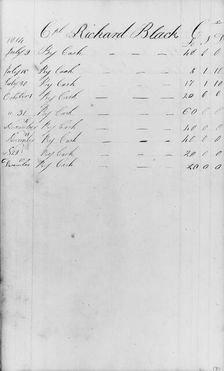 Cpt Richard Black C
1814 £ S D
July 8 By Cash — — — 40 0 0
July 15 By Cash — — 3 1 10
July 20 By Cash — — 17 1 10
October 1 By Cash — — — 20 0 0
" 31 By Cash — — — 60 0 0
November By Cash — — — 40 0 0
By Cash — — — 40 0 0
By Cash — — 20 0 0
December By Cash — — 20 0 0